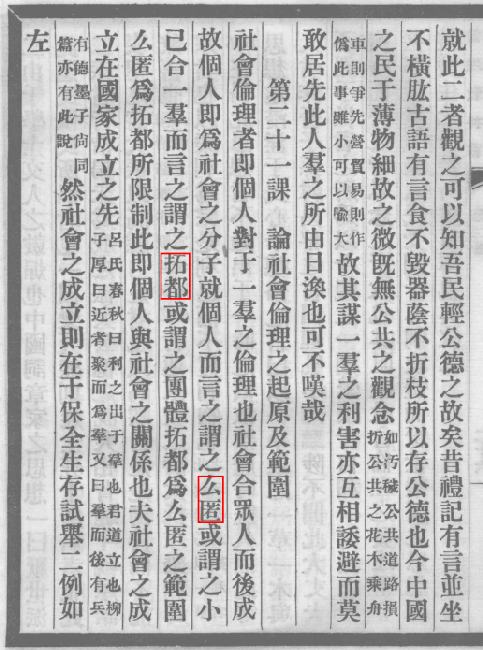 就此二者觀之可以知吾民輕公德之故矣昔禮記有言並坐
不橫肱古語有言食不毀器蔭不折枝所以存公德也今中國
之民于薄物細故之微旣無公共之觀念如汚穢公共道路損折公共之花木乘舟
車則爭先營買易則作僞此事雖小可以喩大故其謀一羣之利害亦互相諉避而莫
敢居先此人羣之所由日渙也可不嘆哉
第二十一課 論社會倫理之起原及範圍
社會倫理者即個人對于一羣之倫理也社會合衆人而後成
故個人即爲社會之分子就個人而言之謂之么匿或謂之小
己合一羣而言之謂之拓都或謂之團體拓都爲么匿之範圍
么匿爲拓都所限制此即個人與社會之關係也夫社會之成
立在國家成立之先呂氏春秋曰利之出于羣也君道立也柳子厚曰近者聚而爲羣又曰羣而後有兵
有德墨子尙同篇亦有此說然社會之成立則在于保全生存試舉二例如
左